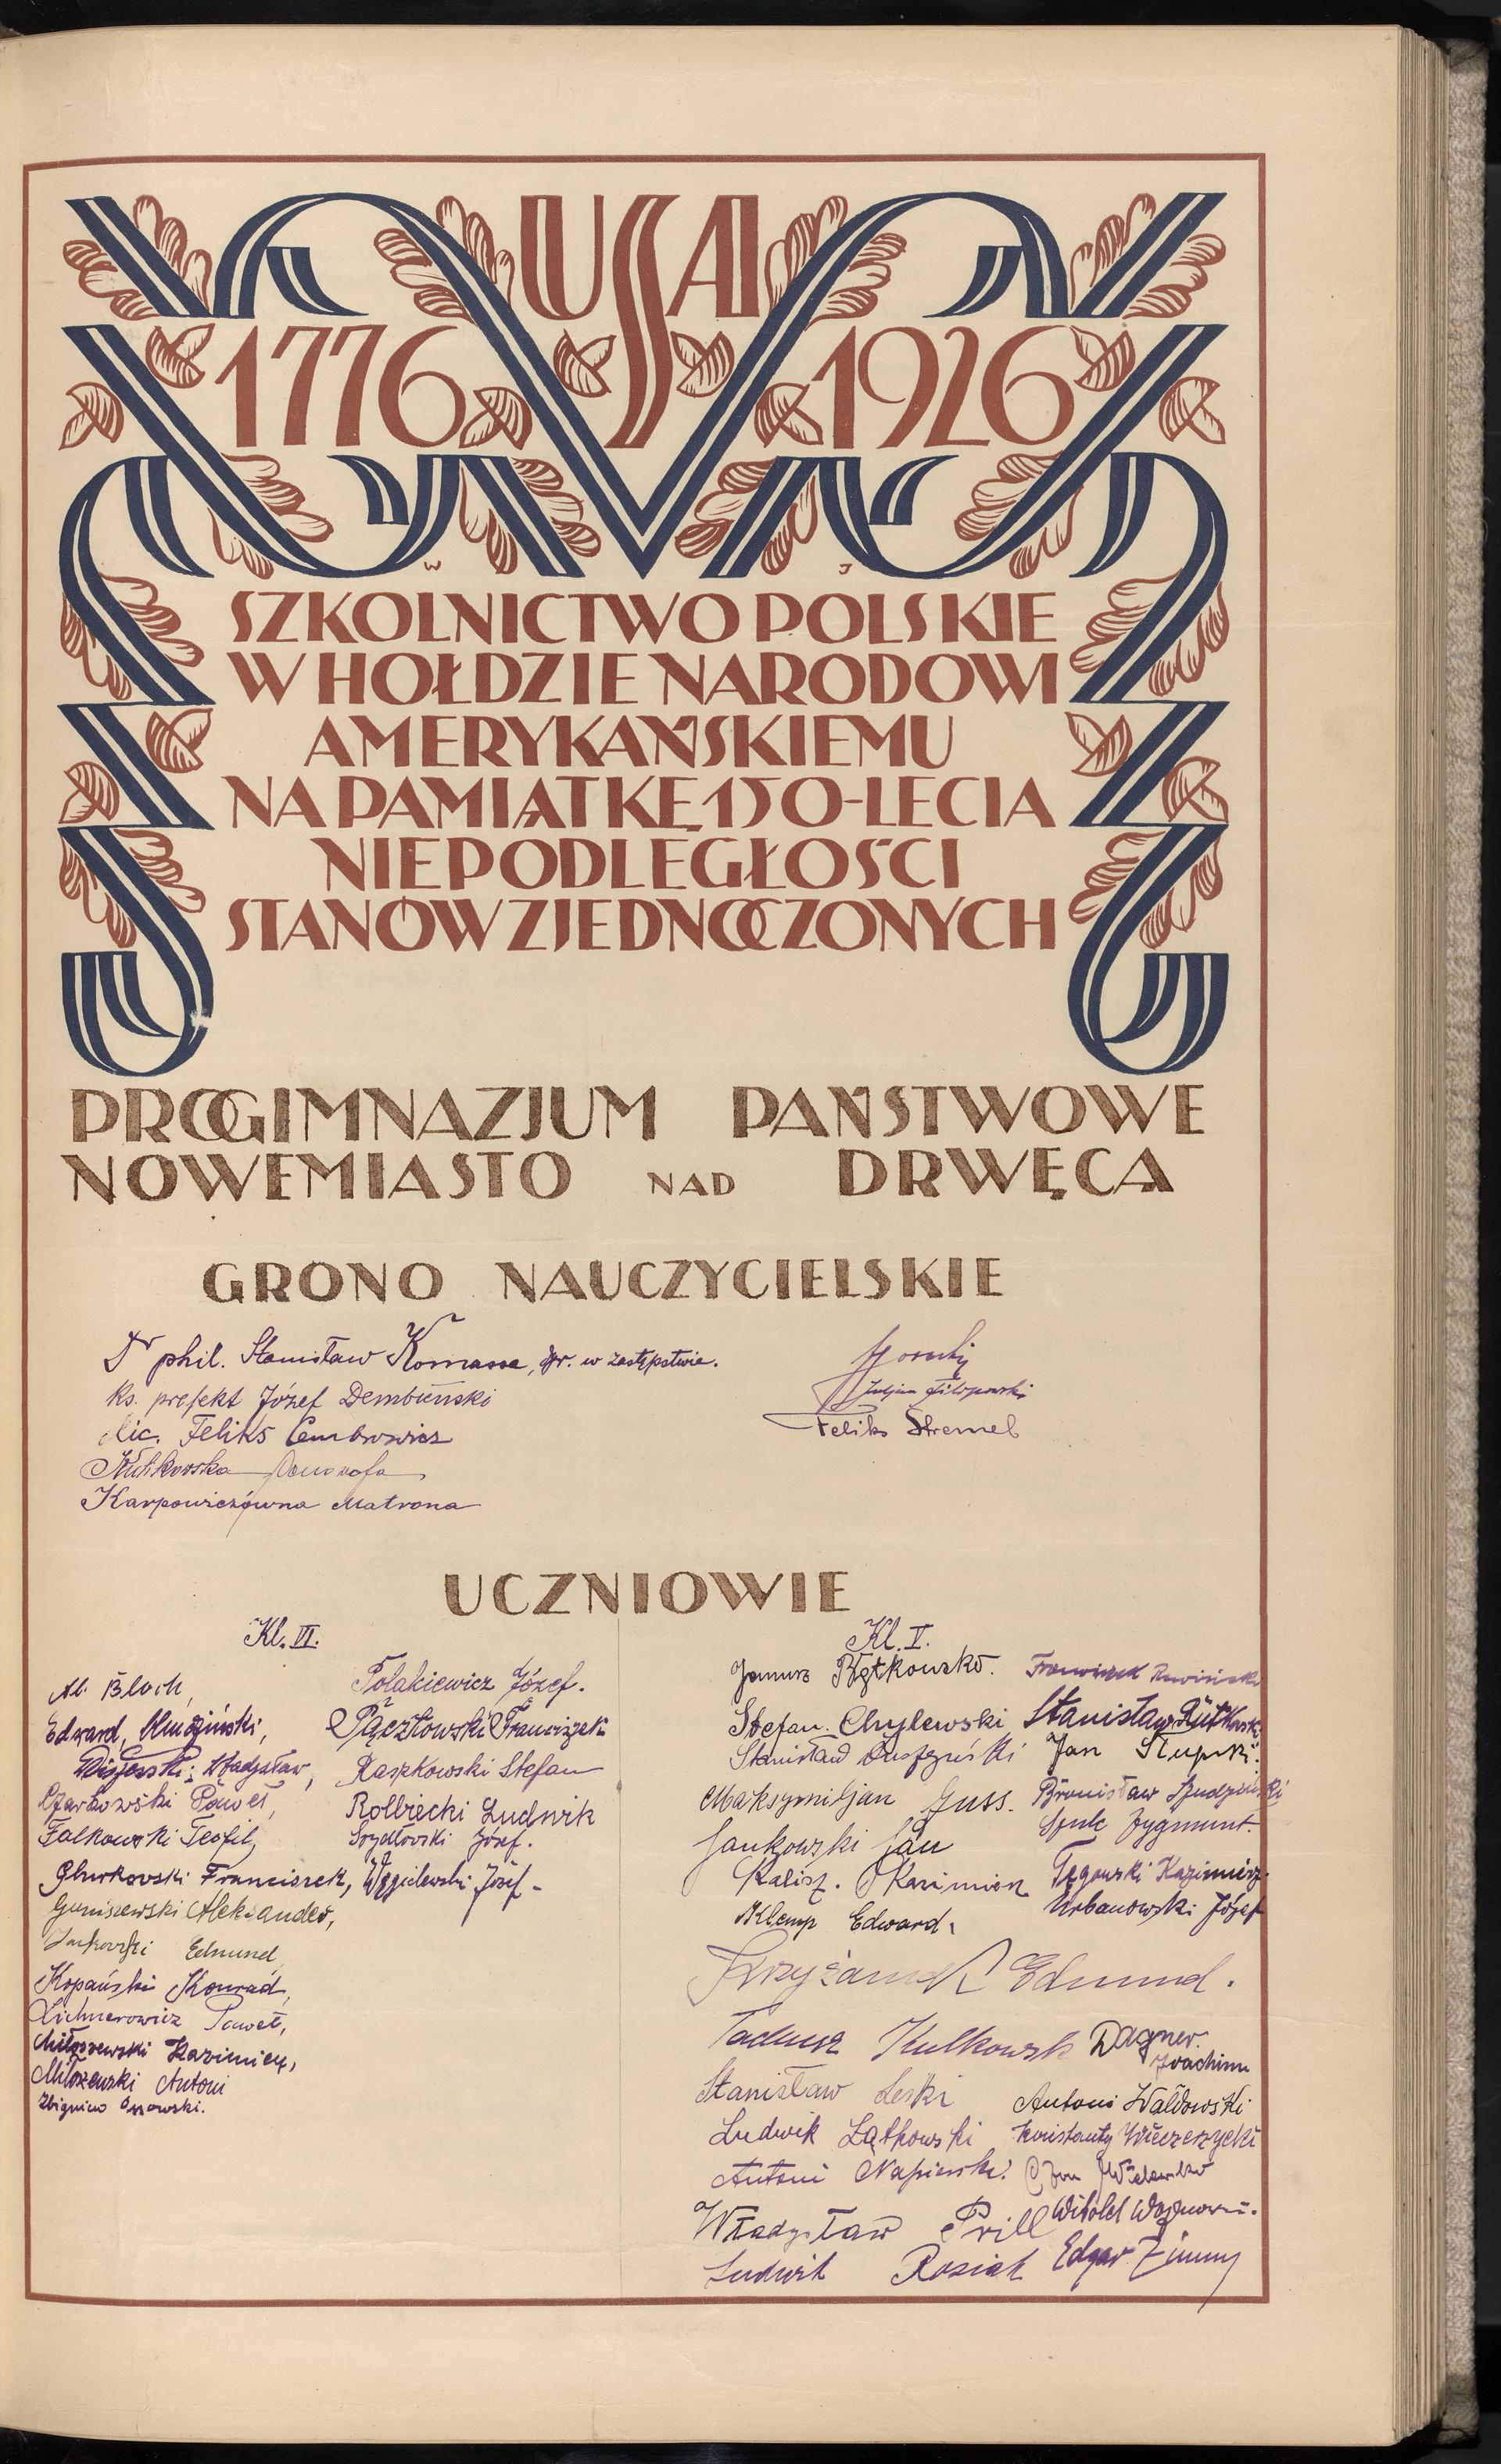 USA
1776 1926
W J
SZKOLNICTWO POLSKIE
W HOŁDZIE NARODOWI
AMERYKAŃSKIEMU
NA PAMIĄTKĘ 150-LECIA
NIEPODLEGŁOŚCI
STANÓW ZJEDNOCZONYCH
PROGIMNAZJUM PAŃSTWOWE
NOWEMIASTO NAD DRWĘCĄ
GRONO NAUCZYCIELSKIE
Dr phil. Stanisław Komassa, dyr. w zastępstwie.
Ks. prefekt Józef Dembieński
lic. Feliks Cembrowicz
Rutkowska
Karpowiczówna Matrona
Juljan Filipowski
Feliks Stremel
UCZNIOWIE
Kl. VI.
Al. Bloch,
Edward,
Władysław,
Czarkowski Paweł,
Falkowski Teofil,
Glurkowski Franciszek,
Guniszewski Aleksander,
Jankowski Edmund,
Kopański Konrad,
Lichnerowicz Paweł,
Miłoszewski Kazimierz,
Miłoszewski Antoni
Zbigniew Ossowski.
Polakiewicz Józef.
Pączkowski Franciszek
Raszkowski Stefan
Rolbiecki Ludwik
Szydłowski Józef.
Węgielewski Józef.
Kl. V.
Janusz
Stefan. Chylewski
Stanisław
Maksymiljan Guss.
Jankowski Jan
Kalisz. Kazimierz
Klemp Edward.
Krzyżanek Edmund.
Tadeusz Kulkowski
Stanisław Leski
Ludwik Łątkowski
Antoni Napierski.
Władysław Prill
Ludwik Rosiak
Franciszek
Stanisław Rutkowski
Jan Słupski.
Bronisław
Szulc Zygmunt.
Tęgowski Kazimierz.
Urbanowski Józef
Wagner.
Joachim
Antoni Wałdowski
Konstanty Wieczerzycki
Jan
Witold
Edgar Zimny